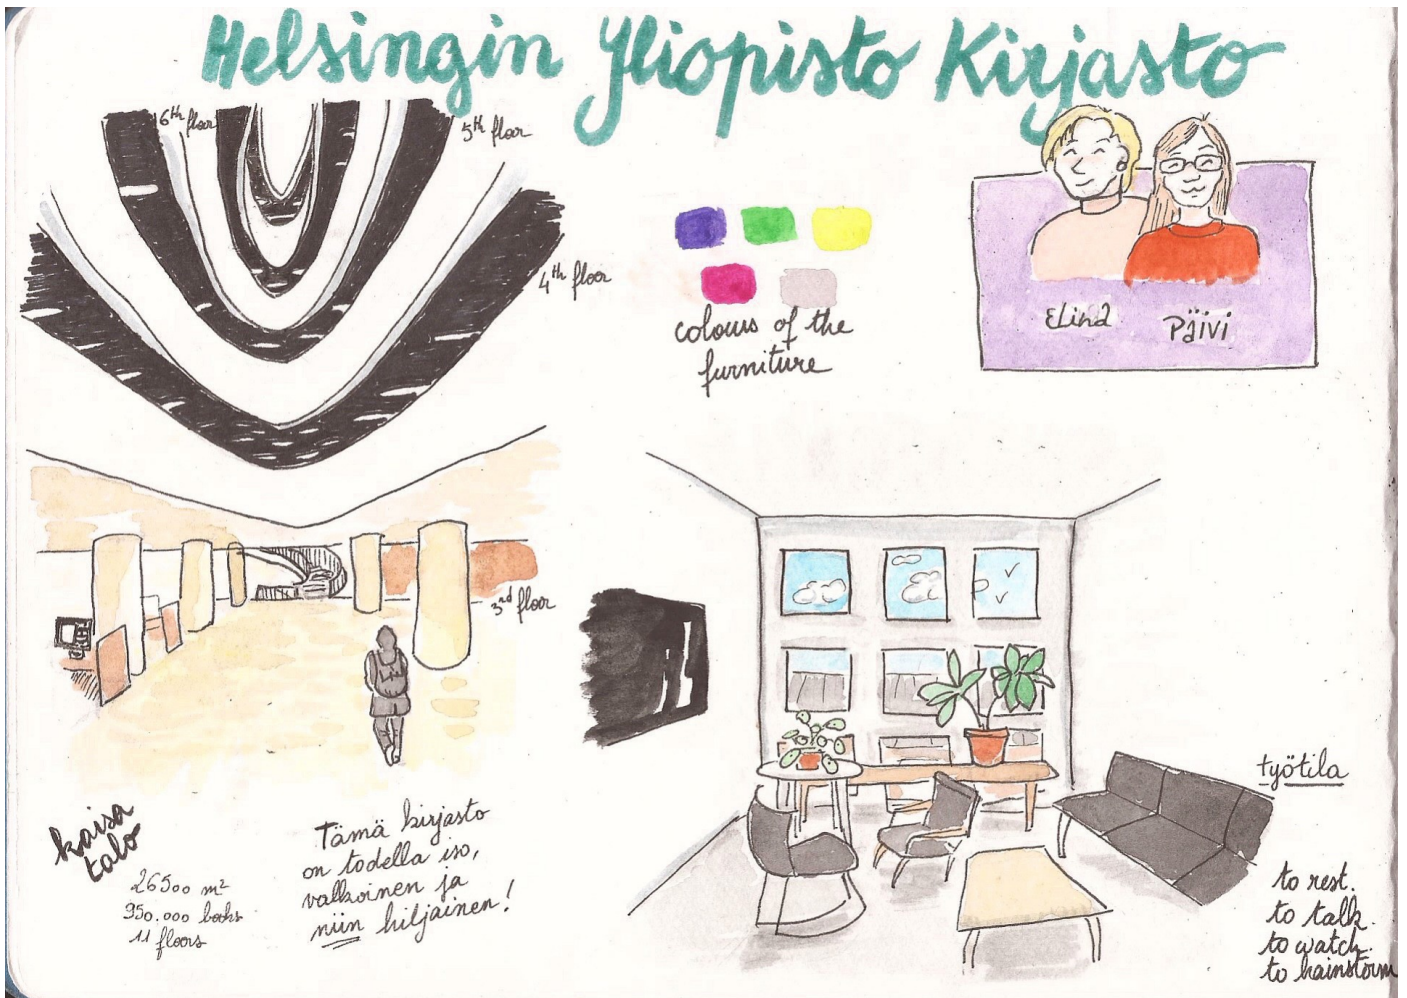 Helsingin Yliopisto Kirjasto
6th floor
5th floor
4th floor
colours of the
furniture
Elina
Päivi
3rd floor
kaisa
talo
26500 m²
950.000 books
11 floors
Tämä kirjasto
on todella iso,
valkoinen ja
niin hiljainen!
työtila
to rest.
to talk.
to watch.
to bainstorm